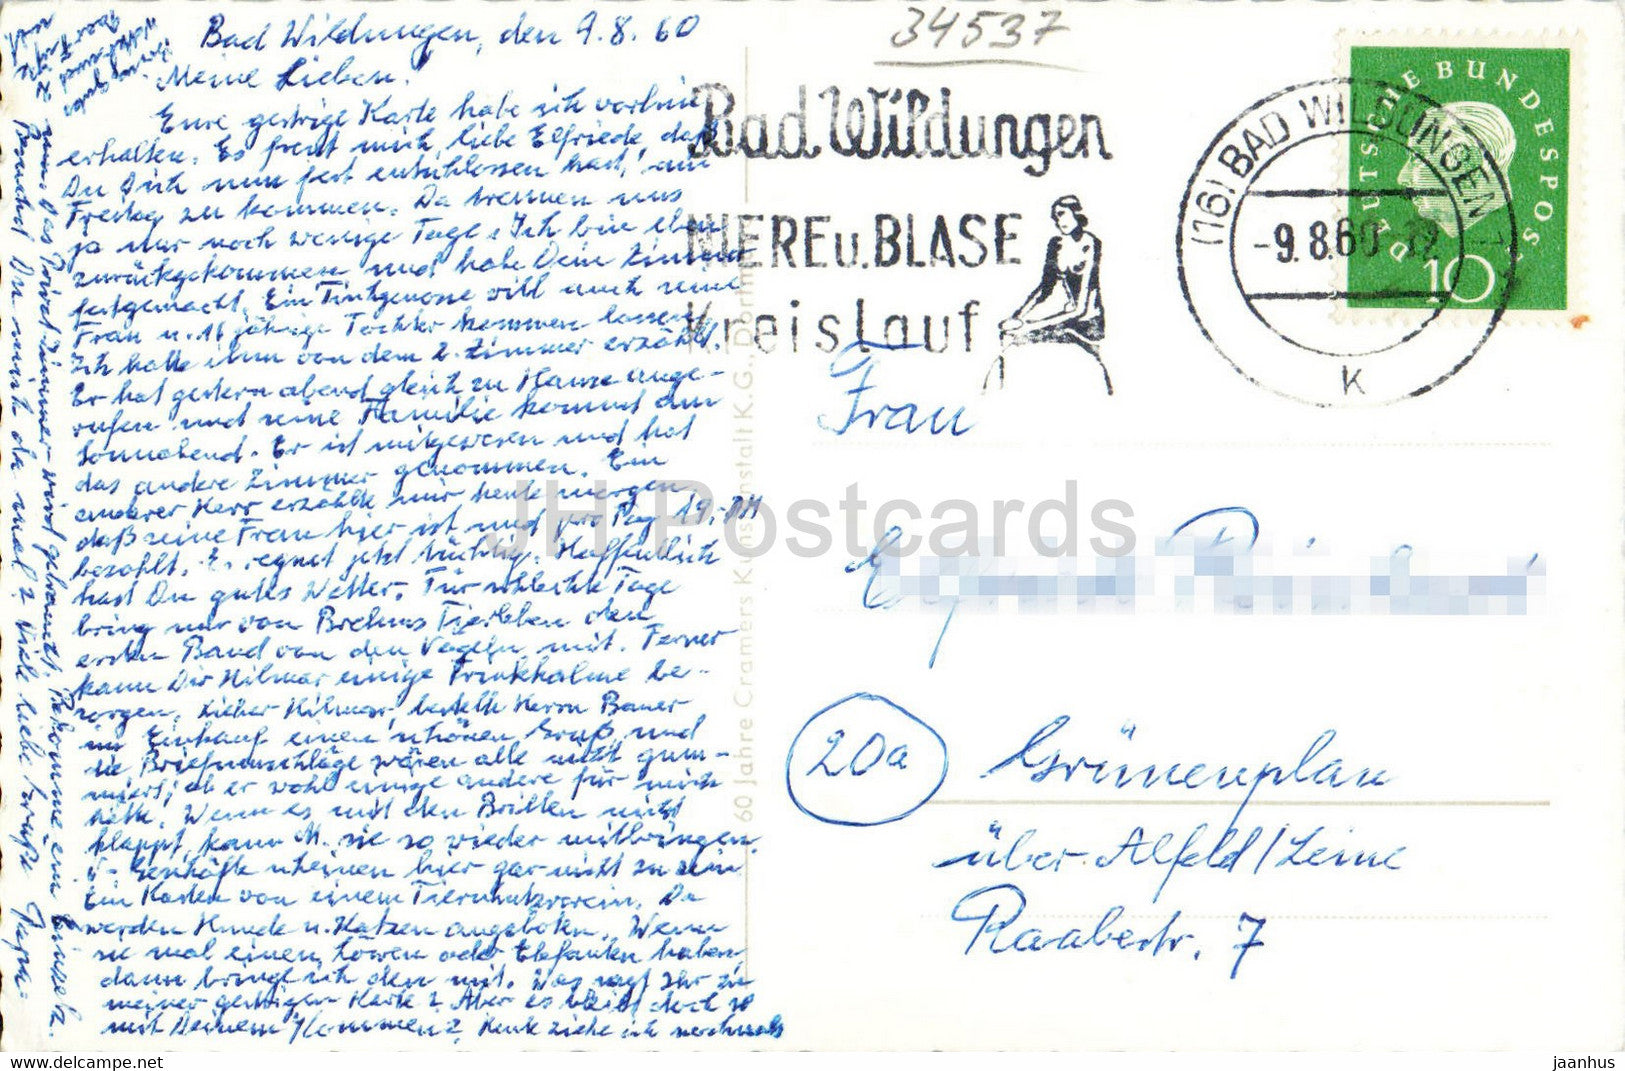 Bad Wildungen, den 9.8.60
Meine Lieben.
Eure gestrige Karte habe ich vorhin
erhalten. Es freut mich, liebe Elfriede, daß
Du Dich nun fest entschlossen hast, am
Freitag zu kommen. Da trennen uns
ja nur noch wenige Tage. Ich bin eben
zurückgekommen und habe Dein Zimmer
festgemacht. Ein Tischgenosse will auch seine
Frau u. 16 jährige Tochter kommen lassen.
Ich hatte ihm von dem 2. Zimmer erzählt.
Er hat gestern abend gleich zu Hause ange-
rufen und seine Familie kommt am
Sonnabend. Er ist mitgewesen und hat
das andere Zimmer genommen. Ein
anderer Herr erzählte mir heute morgen,
daß seine Frau hier ist und pro Tag 19,- DM
bezahlt. Es regnet jetzt tüchtig. Hoffentlich
hast Du gutes Wetter. Für schlechte Tage
bring mir von Brehms Tierleben den
ersten Band von den Vögeln mit. Ferner
kann Dir Hilmar einige Trinkhalme be-
sorgen. Lieber Hilmar, bestelle Herrn Bauer
im Einkauf einen schönen Gruß und
die Briefumschläge wären alle nicht gum-
miert; ob er wohl einige andere für mich
hätte. Wenn es mit den Brillen nicht
klappt, kann M. sie so wieder mitbringen.
Geschäfte scheinen hier gar nicht zu sein
Ein Kasten von einem Tierschutzverein. Da
werden Hunde u. Katzen angeboten. Wenn
sie mal einen Löwen oder Elefanten haben,
dann bringe ich den mit. Was sagt Ihr zu
meiner gestrigen Karte? Aber es bleibt doch so
mit Deinem Kommen? Heute ziehe ich nochmals
um. Das Privatzimmer wird gebraucht. Bekomme ein Einzelz.
Bemerkst Du mich da mal? Viele liebe Grüße Papa.
34537
Bad Wildungen
NIERE u. BLASE
Kreislauf
(16) BAD WILDUNGEN 1
-9.8.60-
K
DEUTSCHE BUNDESPOST
10
60 Jahre Cramers Kunstanstalt K.G. Dortmund
Frau
20a
Grünenplan
über Alfeld/Leine
Raabestr. 7
JH Postcards
https://www.jhpostcards.com
jaanhus